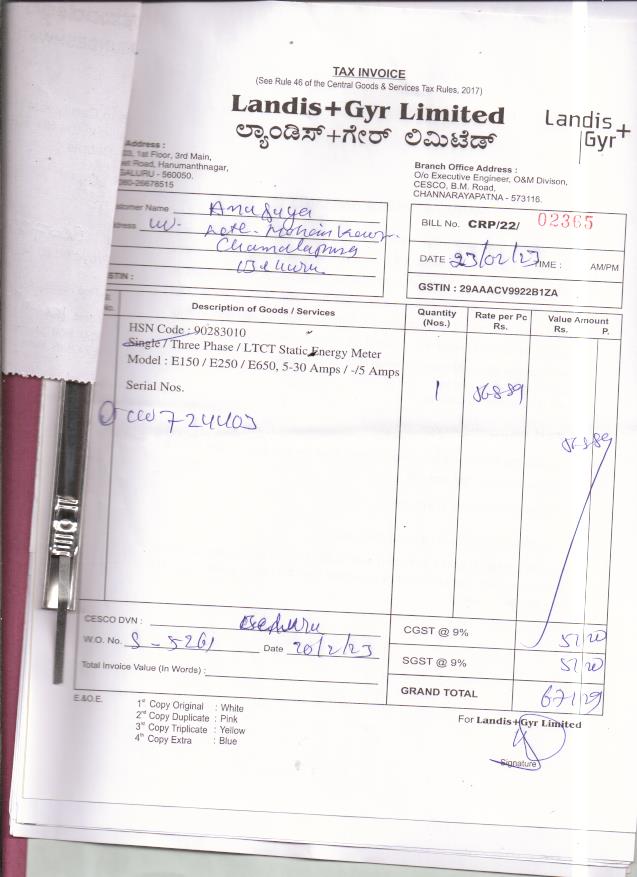 TAX INVOICE
(See Rule 46 of the Central Goods & Services Tax Rules, 2017)
Landis+Gyr Limited
ಲ್ಯಾಂಡಿಸ್+ಗೇರ್ ಲಿಮಿಟೆಡ್
Landis+
Gyr
Address :
1st Floor, 3rd Main,
Road, Hanumanthnagar,
GALURU - 560050.
080-26678515
Branch Office Address :
O/o Executive Engineer, O&M Divison,
CESCO, B.M. Road,
CHANNARAYAPATNA - 573116.
stomer Name Anusuya
dress W/o
Chamalapura
STIN :
BILL No. CRP/22/ 02365
DATE : 23/02/23 TIME : AM/PM
GSTIN : 29AAACV9922B1ZA
Description of Goods / Services Quantity (Nos.) Rate per Pc Rs. Value Amount Rs. P.
HSN Code : 90283010
Single / Three Phase / LTCT Static Energy Meter
Model : E150 / E250 / E650, 5-30 Amps / -/5 Amps
Serial Nos.
1 568-89
568-89
CESCO DVN :
W.O. No. S-5261 Date 20/2/23
Total Invoice Value (In Words) :
CGST @ 9% 51 20
SGST @ 9% 51 20
GRAND TOTAL 671 29
E.&O.E.
1st Copy Original : White
2nd Copy Duplicate : Pink
3rd Copy Triplicate : Yellow
4th Copy Extra : Blue
For Landis+Gyr Limited
Signature